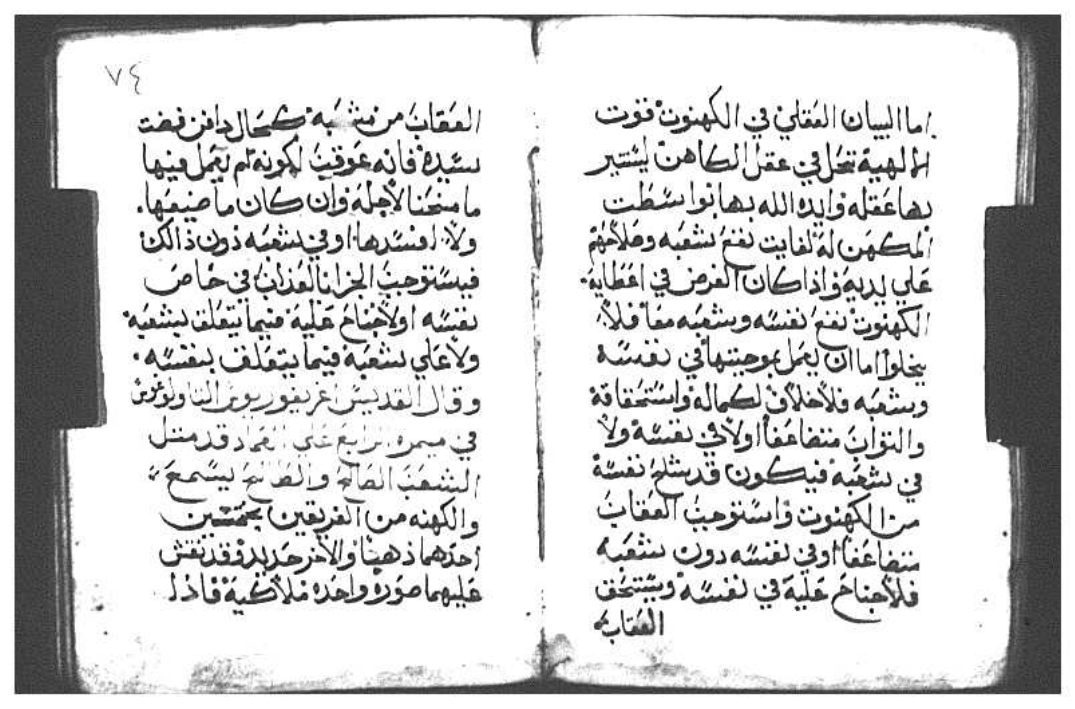 اما البيان العقلي في الكهنوت قوت
الالهية تحل في عقل الكاهن ليستنير
بها عقله وايده الله بها بواسطت
المكهن له لغايت نفع شعبه وصلاحهم
علي يديه واذا كان الغرض في اعطايه
الكهنوت نفع نفسه وشعبه معا فلا
يخلوا اما ان يعمل بموجبتها في نفسه
وشعبه فلا خلاف لكماله واستحقاقه
والثواب متضاعفا اولا في نفسه ولا
في شعبه فيكون قد سلم نفسه
من الكهنوت واستوجب العقاب
متضاعفا اوفي نفسه دون شعبه
فلا جناح عليه في نفسه ويستحق
العقاب
٧٤
العقاب من شعبه كحال دافن فضت
سيده فانه عوقب لكونه لم يعمل فيها
ما منحنا لاجله وان كان ما ضيعها
ولا افسدها اوفي شعبه دون ذالك
فيستوجب العذاب في خاص
نفسه اولا جناح عليه فيما يتعلق بشعبه
ولا علي شعبه فيما يتعلق بنفسه
وقال القديس اغريغوريوس
في ميمره الرابع علي العماد قد مثل
الشعب الصالح والطالح
والكهنه من الفريقين بختمين
احدهما ذهبا والاخر حديد وقد نقش
عليهما صوره واحده ملاكية فاذا